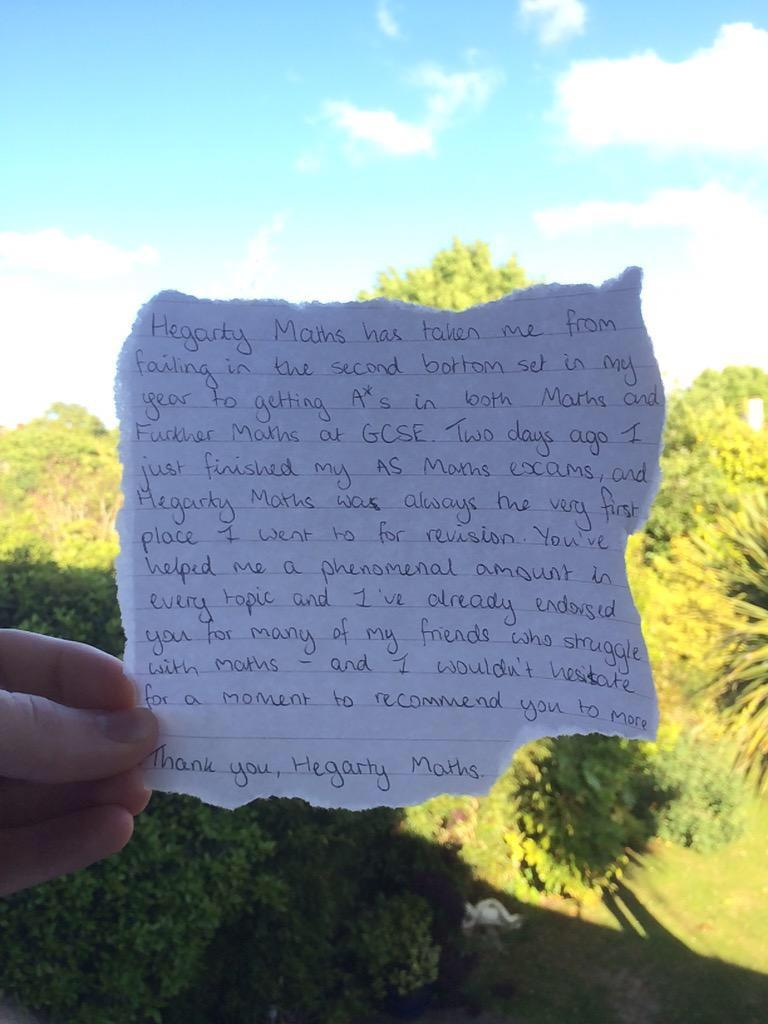 Hegarty Maths has taken me from
failing in the second bottom set in my
year to getting A*s in both Maths and
Further Maths at GCSE. Two days ago I
just finished my AS Maths exams, and
Hegarty Maths was always the very first
place I went to for revision. You've
helped me a phenomenal amount in
every topic and I've already endorsed
you for many of my friends who struggle
with maths – and I wouldn't hesitate
for a moment to recommend you to more
Thank you, Hegarty Maths.